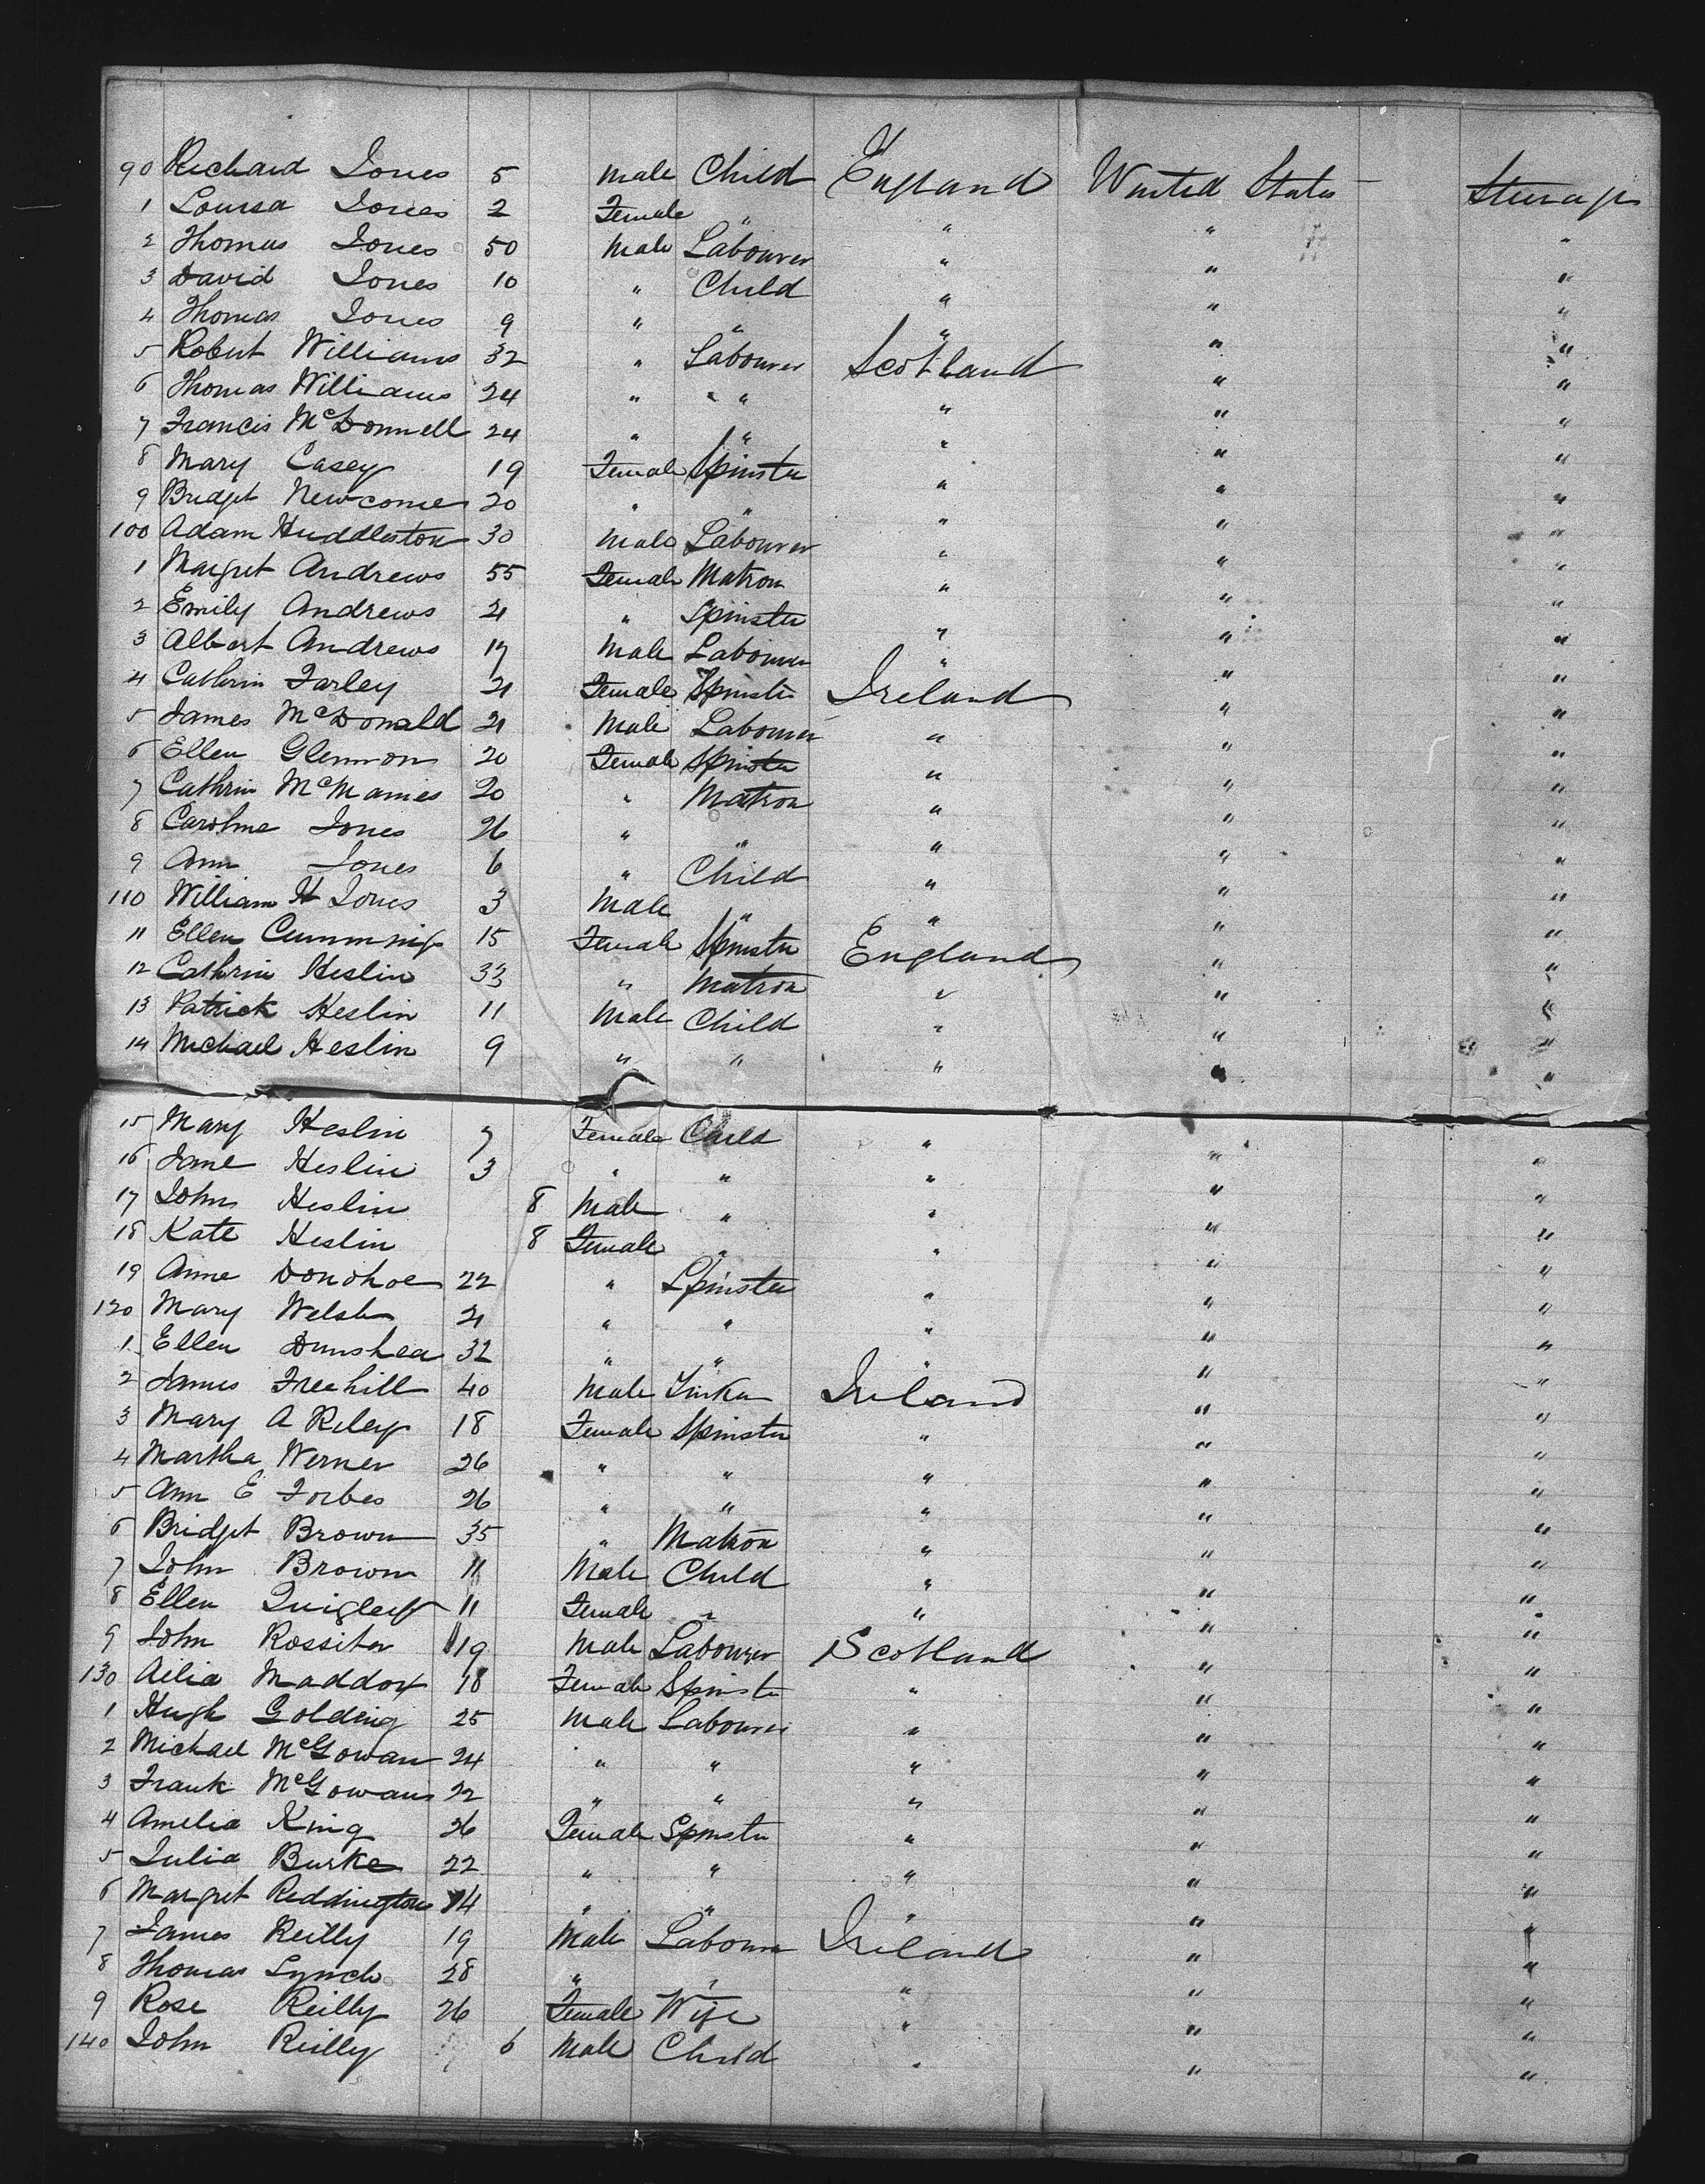 90 Richard Jones 5 Male Child England United States Steerage
1 Louisa Jones 2 Female " " " "
2 Thomas Jones 50 Male Labourer " " "
3 David Jones 10 " Child " " "
4 Thomas Jones 9 " " " " "
5 Robert Williams 32 " Labourer Scotland " "
6 Thomas Williams 24 " " " " "
7 Francis McDonnell 24 " " " " "
8 Mary Casey 19 Female Spinster " " "
9 Bridget Newcome 20 " " " " "
100 Adam Huddleston 30 Male Labourer " " "
1 Margret Andrews 55 Female Matron " " "
2 Emily Andrews 21 " Spinster " " "
3 Albert Andrews 17 Male Labourer " " "
4 Cathrin Farley 21 Female Spinster Ireland " "
5 James McDonald 21 Male Labourer " " "
6 Ellen Glennon 20 Female Spinster " " "
7 Cathrin McManies 20 " Matron " " "
8 Caroline Jones 26 " " " " "
9 Ann Jones 6 " Child " " "
110 William H Jones 3 Male " " " "
11 Ellen Cummings 15 Female Spinster England " "
12 Cathrin Heslin 33 " Matron " " "
13 Patrick Heslin 11 Male Child " " "
14 Michael Heslin 9 " " " " "
15 Mary Heslin 7 Female Child " " "
16 Jane Heslin 3 " " " " "
17 John Heslin 8 Male " " " "
18 Kate Heslin 8 Female " " " "
19 Anne Donohoe 22 " Spinster " " "
120 Mary Welsh 21 " " " " "
1 Ellen Dunshea 32 " " " " "
2 James Freehill 40 Male Tinker Ireland " "
3 Mary A Riley 18 Female Spinster " " "
4 Martha Werner 26 " " " " "
5 Ann E Forbes 26 " " " " "
6 Bridget Brown 35 " Matron " " "
7 John Brown 11 Male Child " " "
8 Ellen Quigley 11 Female " " " "
9 John Rossiter 19 Male Labourer Scotland " "
130 Ailia Maddox 18 Female Spinster " " "
1 Hugh Golding 25 Male Labourer " " "
2 Michael McGowan 24 " " " " "
3 Frank McGowan 22 " " " " "
4 Amelia King 26 Female Spinster " " "
5 Julia Burke 22 " " " " "
6 Margret Reddington 14 " " " " "
7 James Reilly 19 Male Labourer Ireland " "
8 Thomas Lynch 28 " " " " "
9 Rose Reilly 26 Female Wife " " "
140 John Reilly 6 Male Child " " "